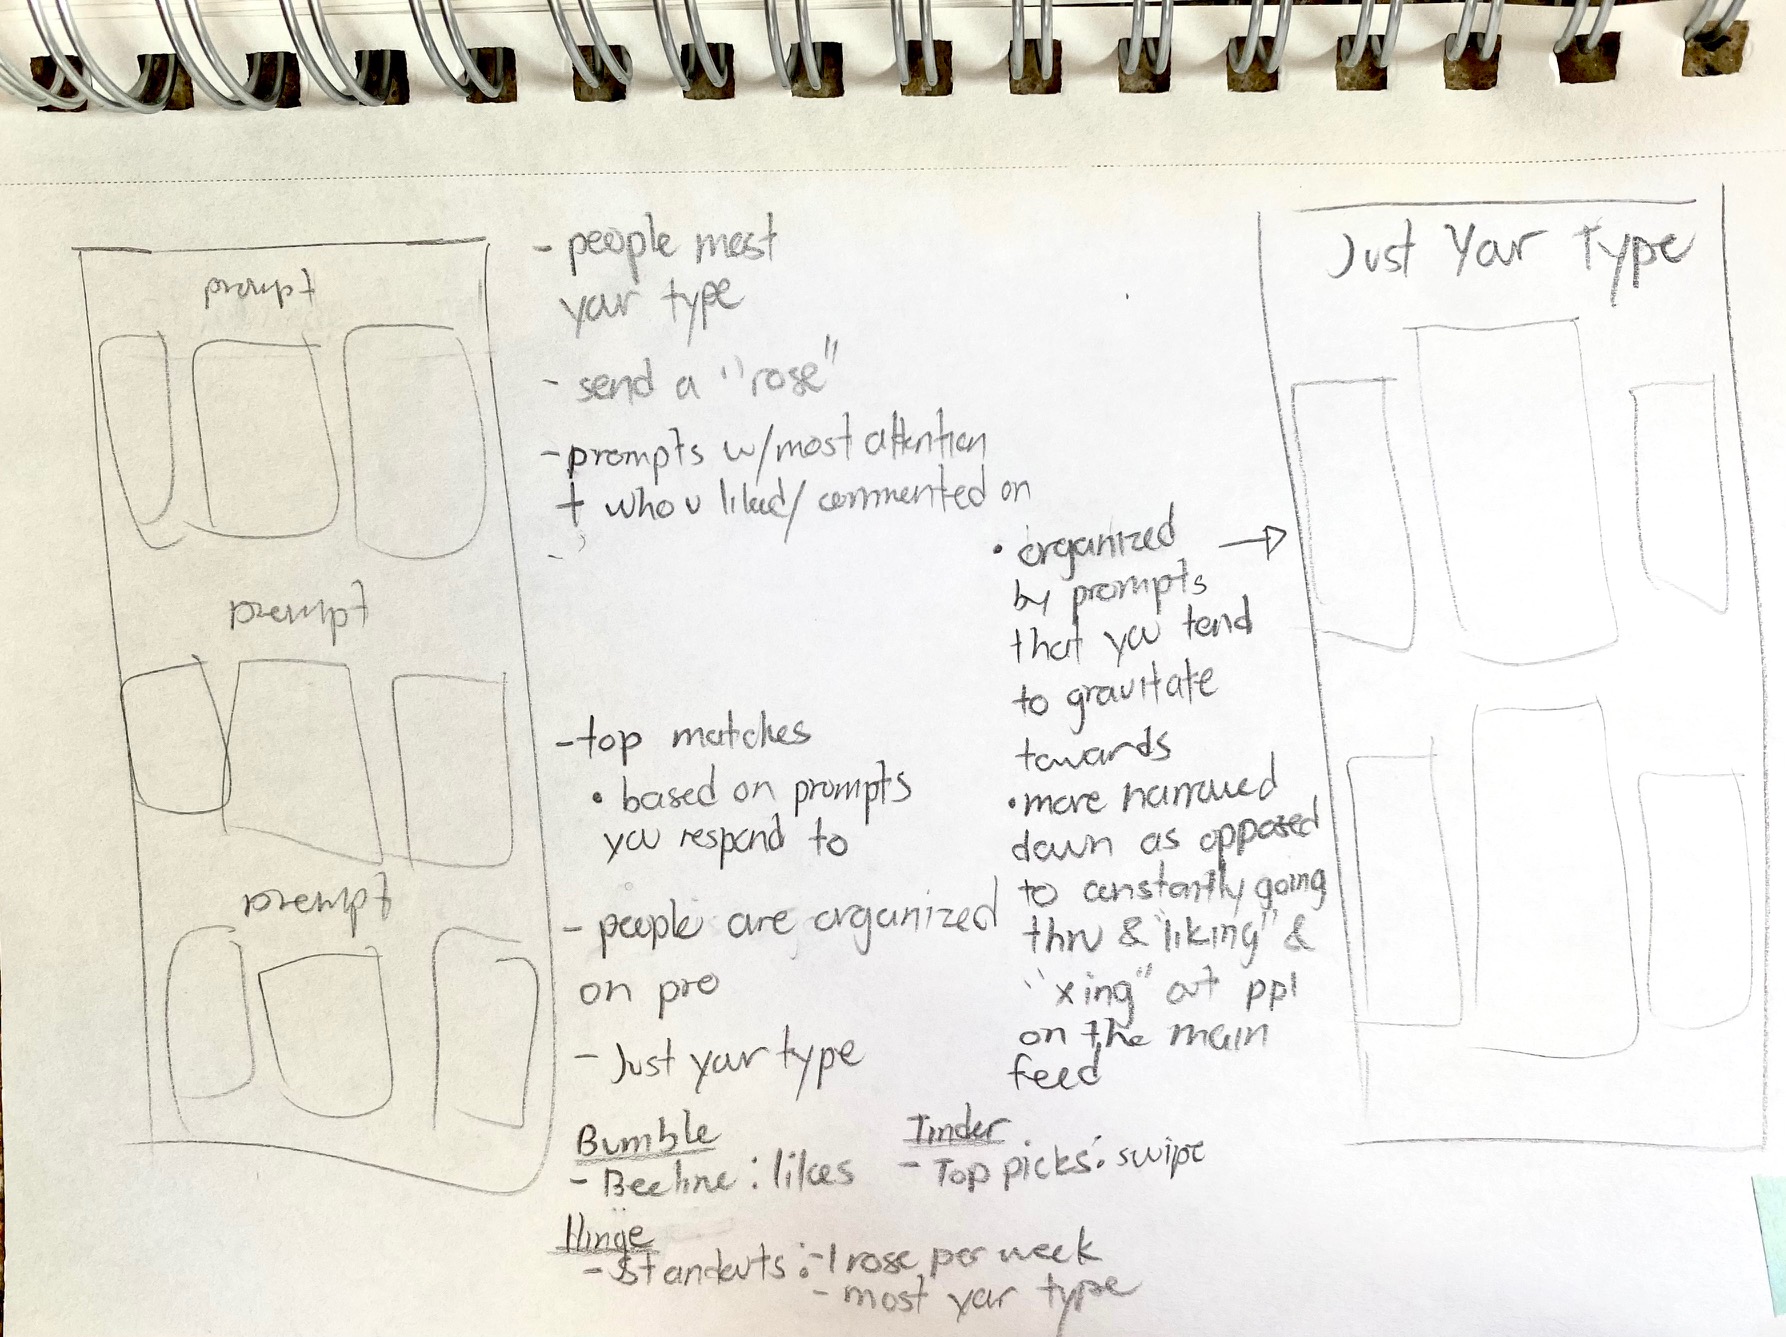 prompt
prompt
prompt
- people most
your type
- send a "rose"
- prompts w/most attention
+ who u liked/ commented on
-
- top matches
• based on prompts
you respond to
- people are organized
on pro
- Just your type
• organized →
by prompts
that you tend
to gravitate
towards
• more narrowed
down as opposed
to constantly going
thru & "liking" &
"xing" out ppl
on the main
feed
Just Your Type
Bumble
- Beeline : likes
Tinder
- Top picks : swipe
Hinge
- Standouts : - 1 rose per week
- most your type